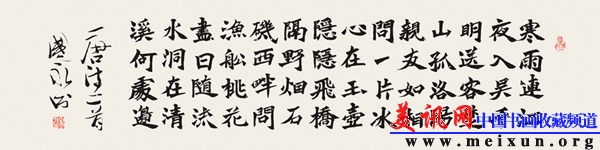 寒雨連江
夜入吳平
明送客楚
山孤洛陽
親友如相
問一片冰
心在玉壺
隱隱飛橋
隔野烟石
磯西畔問
漁船桃花
盡日隨流
水洞在清
溪何處邊
唐诗二首
國永书
美讯网
中国书画收藏频道
www.meixun.org